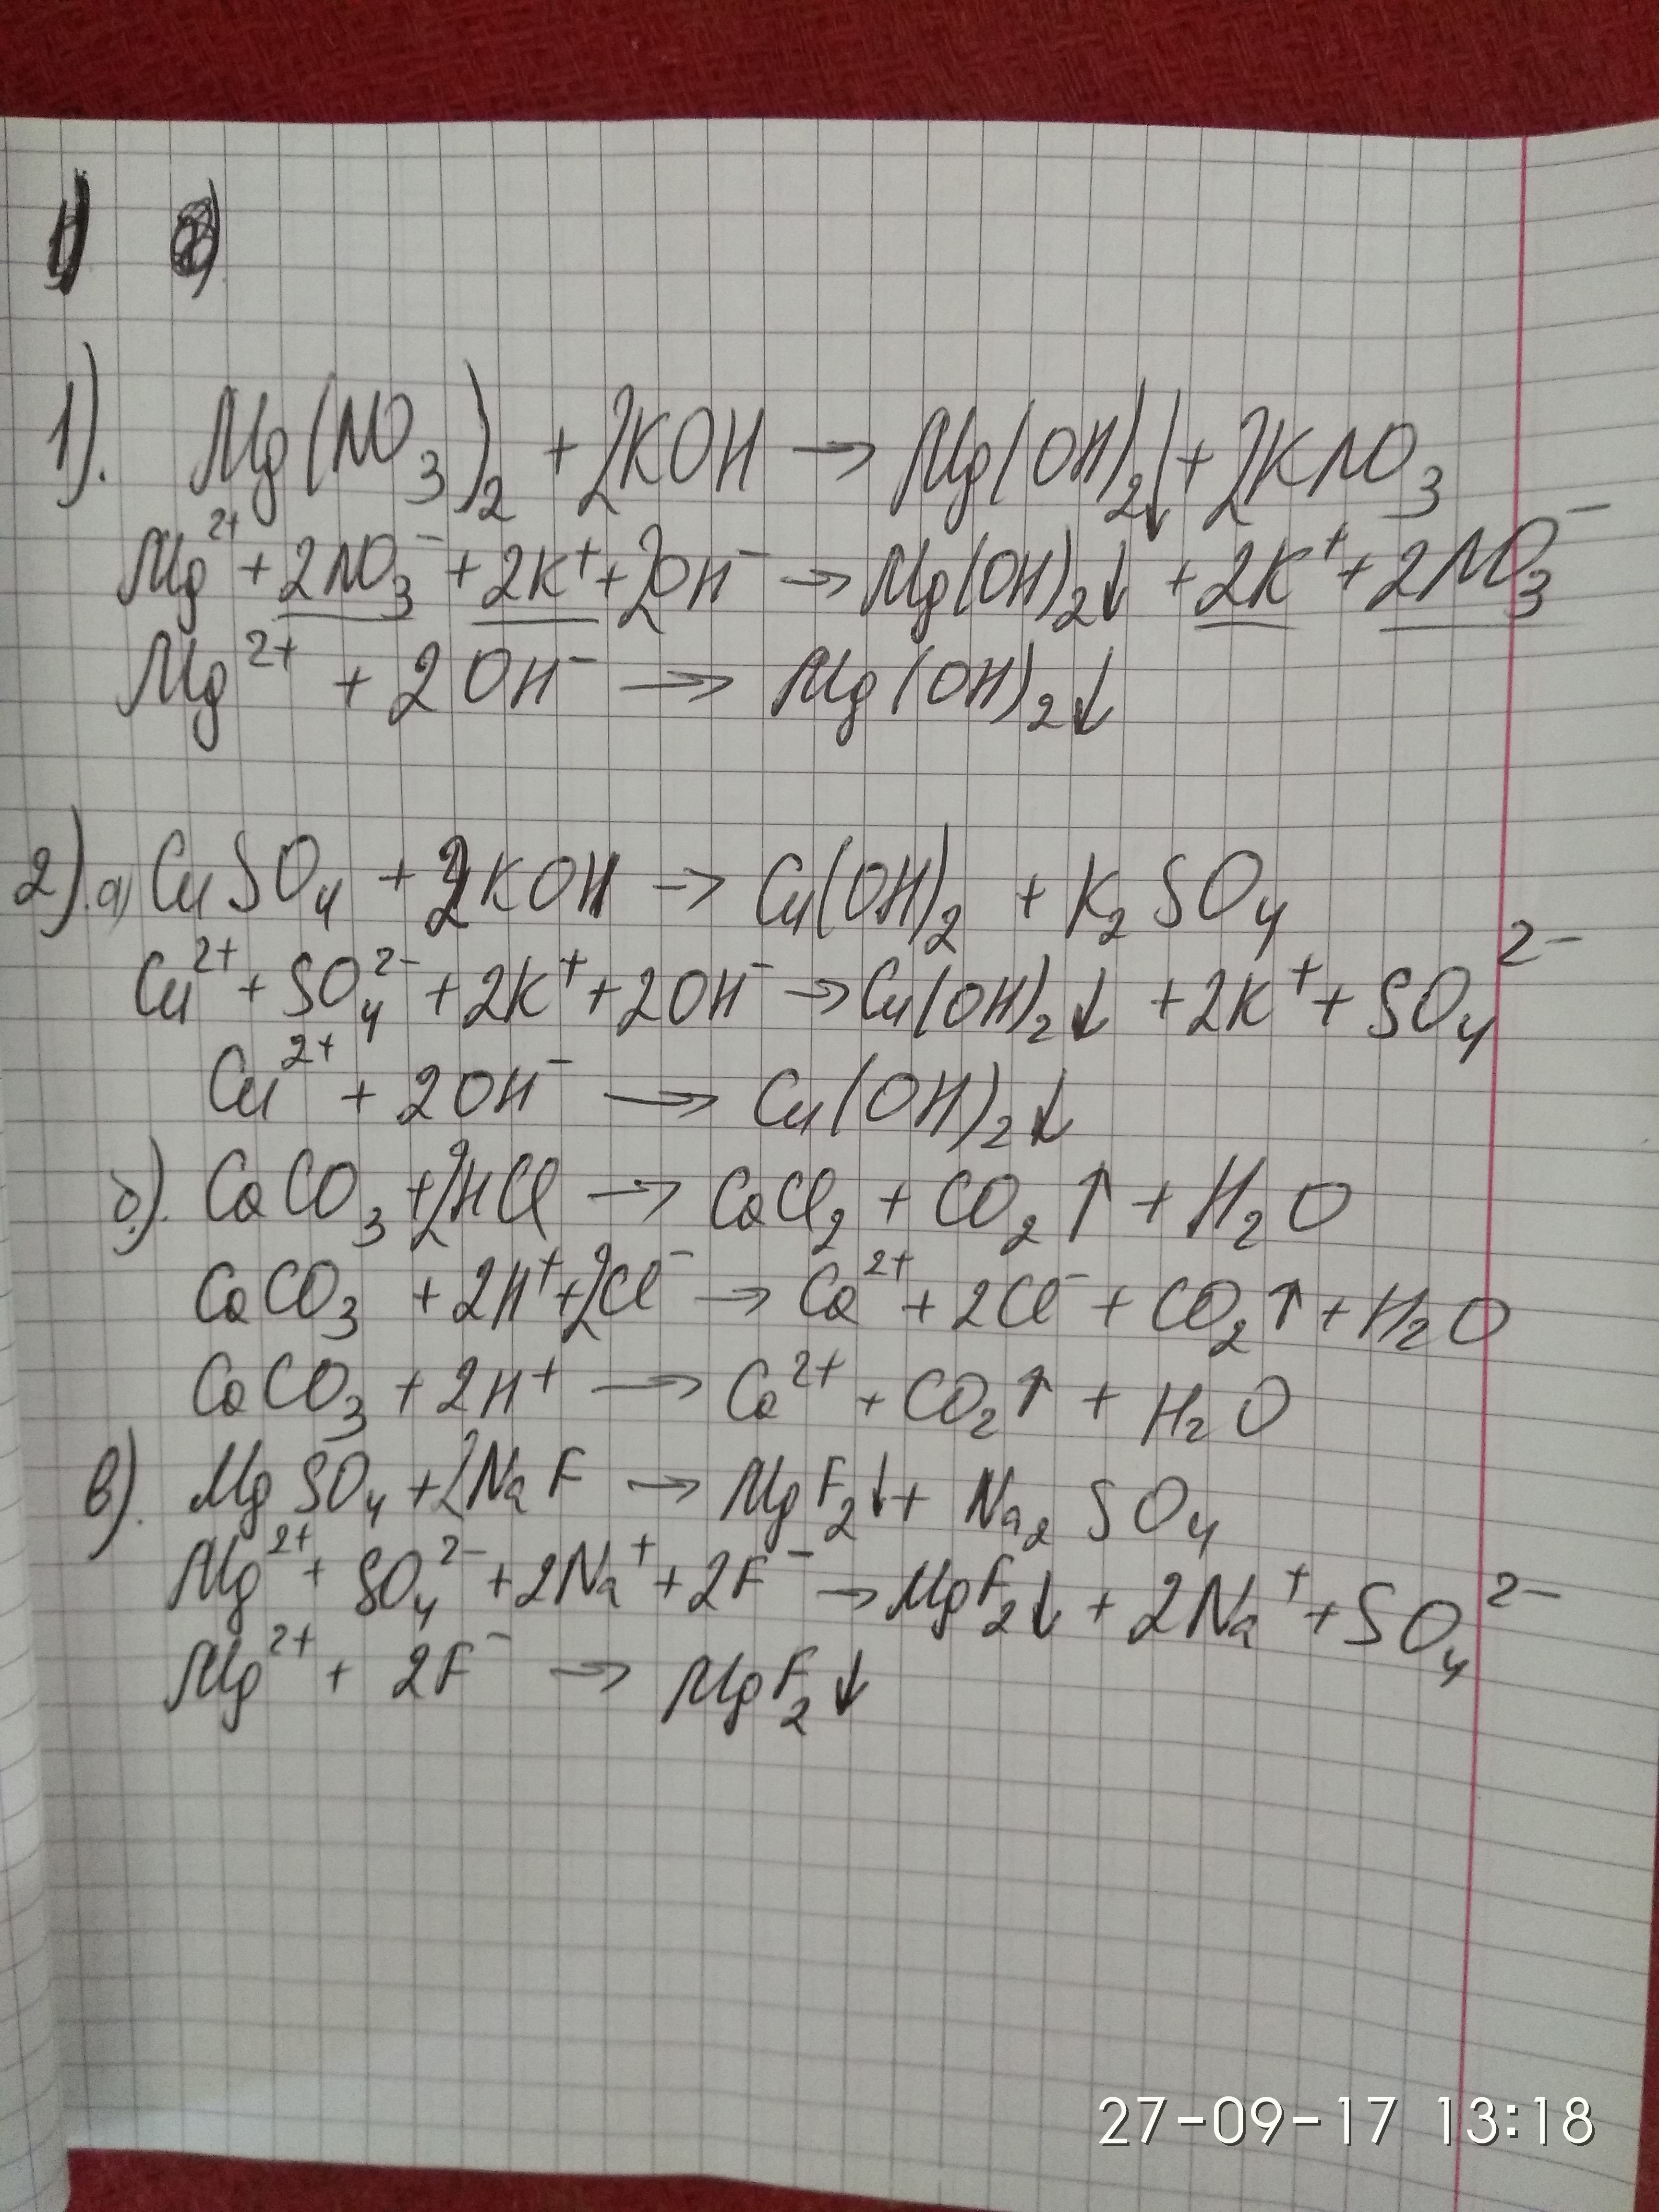 1).
1). Mg(NO₃)₂ + 2KOH → Mg(OH)₂↓ + 2KNO₃
Mg²⁺ + 2NO₃⁻ + 2K⁺ + 2OH⁻ → Mg(OH)₂↓ + 2K⁺ + 2NO₃⁻
Mg²⁺ + 2OH⁻ → Mg(OH)₂↓
2). а) CuSO₄ + 2KOH → Cu(OH)₂ + K₂SO₄
Cu²⁺ + SO₄²⁻ + 2K⁺ + 2OH⁻ → Cu(OH)₂↓ + 2K⁺ + SO₄²⁻
Cu²⁺ + 2OH⁻ → Cu(OH)₂↓
б). CaCO₃ + 2HCl → CaCl₂ + CO₂↑ + H₂O
CaCO₃ + 2H⁺ + 2Cl⁻ → Ca²⁺ + 2Cl⁻ + CO₂↑ + H₂O
CaCO₃ + 2H⁺ → Ca²⁺ + CO₂↑ + H₂O
в). MgSO₄ + 2NaF → MgF₂↓ + Na₂SO₄
Mg²⁺ + SO₄²⁻ + 2Na⁺ + 2F⁻ → MgF₂↓ + 2Na⁺ + SO₄²⁻
Mg²⁺ + 2F⁻ → MgF₂↓
27-09-17 13:18